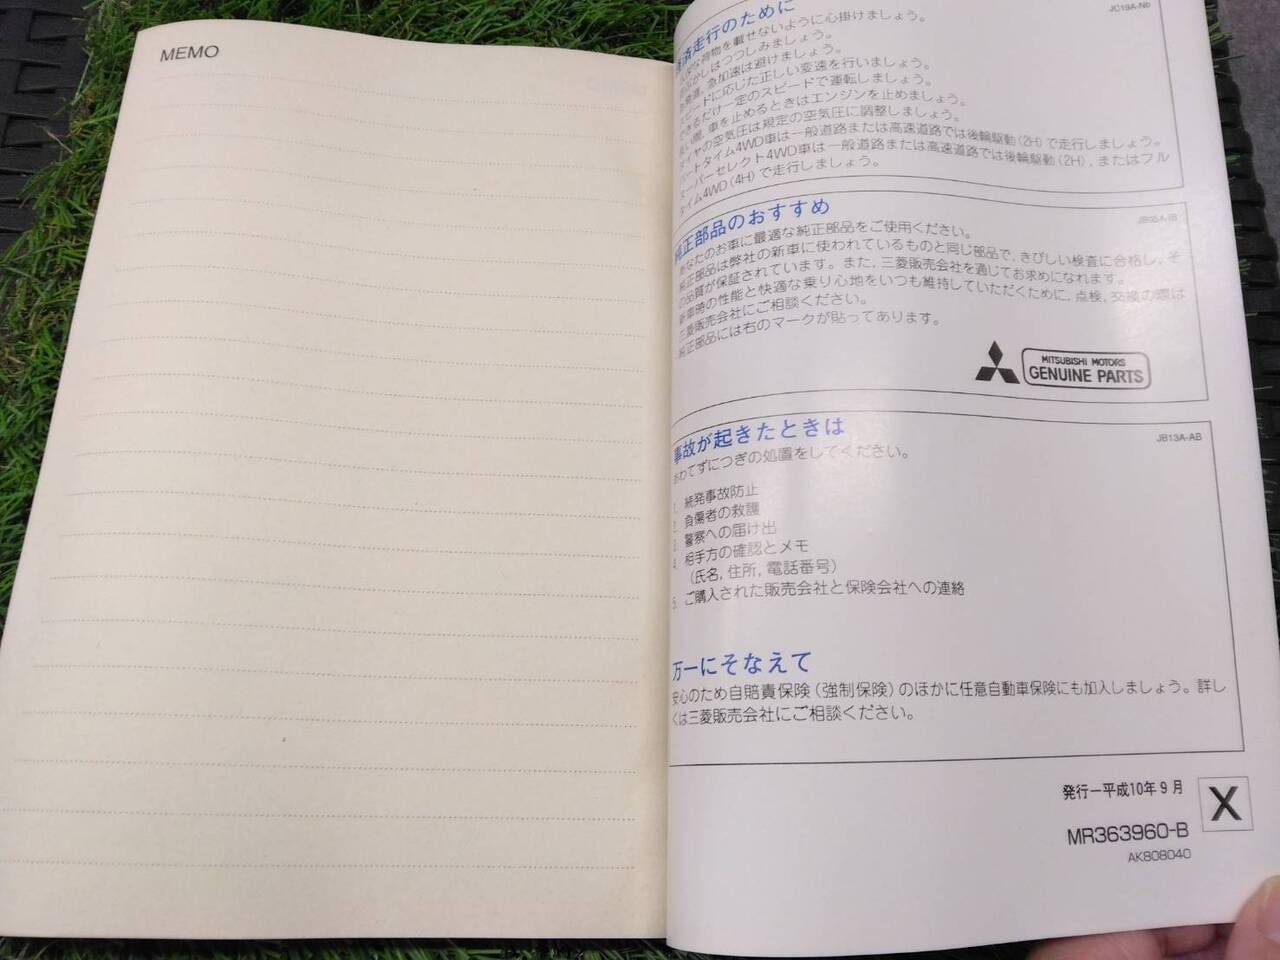 MEMO
済走行のために
JC19A-Nb
な荷物を載せないように心掛けましょう。
ぶかしはつつしみましょう。
発進、急加速は避けましょう。
ピードに応じた正しい変速を行いましょう。
できるだけ一定のスピードで運転しましょう。
い間、車を止めるときはエンジンを止めましょう。
イヤの空気圧は規定の空気圧に調整しましょう。
ートタイム4WD車は一般道路または高速道路では後輪駆動(2H)で走行しましょう。
ーパーセレクト4WD車は一般道路または高速道路では後輪駆動(2H)、またはフル
タイム4WD(4H)で走行しましょう。
純正部品のおすすめ
JB08A-IB
あなたのお車に最適な純正部品をご使用ください。
純正部品は弊社の新車に使われているものと同じ部品で、きびしい検査に合格し、そ
の品質が保証されています。また、三菱販売会社を通じてお求めになれます。
新車時の性能と快適な乗り心地をいつも維持していただくために、点検、交換の際は
三菱販売会社にご相談ください。
純正部品には右のマークが貼ってあります。
MITSUBISHI MOTORS
GENUINE PARTS
事故が起きたときは
JB13A-AB
あわてずにつぎの処置をしてください。
1. 続発事故防止
2. 負傷者の救護
3. 警察への届け出
4. 相手方の確認とメモ
(氏名, 住所, 電話番号)
5. ご購入された販売会社と保険会社への連絡
万一にそなえて
安心のため自賠責保険(強制保険)のほかに任意自動車保険にも加入しましょう。詳し
くは三菱販売会社にご相談ください。
発行ー平成10年9月
X
MR363960-B
AK808040